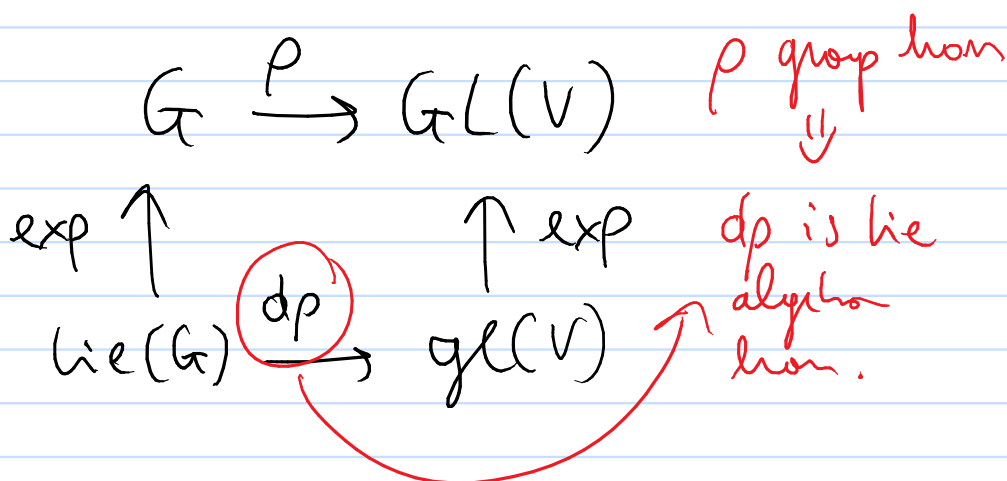 G ρ→ GL(V)
ρ group hom
⇓
exp ↑ ↑ exp
dρ is lie
algebra
hom.
lie(G) dρ→ gl(V)